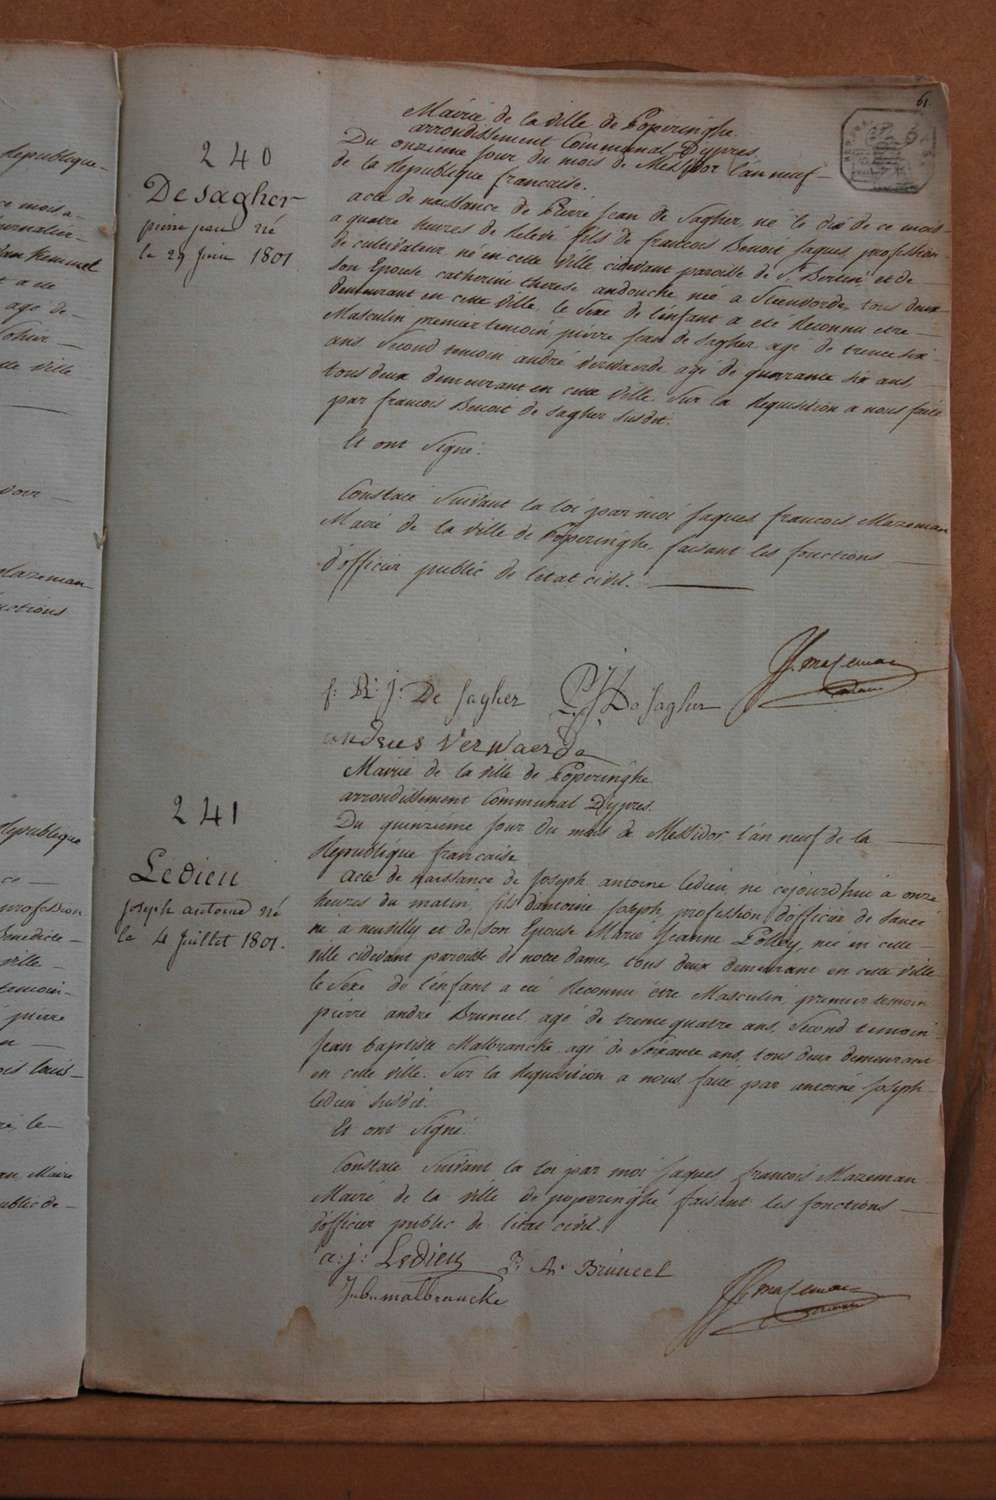 61
240
De Sagher
pierre jean né
le 29 juin 1801
Mairie de la ville de Poperinghe
arrondissement Communal Dypres.
Du onzième jour du mois de Messidor l'an neuf
de la République française.
acte de naissance de Pierre Jean de Sagher, né le dix de ce mois
a quatre heures de relevé fils de francois Benoit Jaques, profession
de cultivateur né en cette ville cidevant paroisse de St Bertin et de
son Epouse catherine therese andouche, née a Steenvorde, tous deux
demeurant en cette ville, le sexe de l'enfant a eté reconnu etre
Masculin premier temoin pierre Jean de Sagher agé de trente six
ans second temoin andré Verwaerde agé de quarante six ans,
tous deux demeurant en cette ville. Sur la Requisition a nous faite
par francois Benoit de Sagher susdit.
Et ont signé.
Constaté suivant la loi par moi Jaques francois Mazeman
Maire de la ville de Poperinghe, faisant les fonctions
d'officier public de l'etat civil.
J. f. Mazeman
f: B: j: De Sagher P J De Sagher
andries Verwaerde
241
Ledieu
Joseph antoine né
le 4 Juillet 1801.
Mairie de la ville de Poperinghe
arrondissement Communal Dypres.
Du quinzième jour du mois de Messidor l'an neuf de la
République française
Acte de naissance de Joseph antoine ledieu né cejourd'hui a onze
heures du matin, fils d'antoine Joseph, profession d'officier de santé
né a neuilly et de son Epouse Marie Jeanne Polley, née en cette
ville cidevant paroisse de notre dame, tous deux demeurant en cette ville
le sexe de l'enfant a eté reconnu être Masculin, premier temoin
pierre andré Bruneel agé de trente quatre ans, second temoin
Jean baptiste Malbrancke agé de soixante ans, tous deux demeurant
en cette ville. Sur la Requisition a nous faite par antoine Joseph
ledieu susdit.
Et ont signé.
Constaté suivant la loi par moi Jaques francois Mazeman
Maire de la ville de poperinghe faisant les fonctions
d'officier public de l'etat civil.
a: j: Ledieu P: An: Brúneel
J. b. malbrancke
J. f. Mazeman